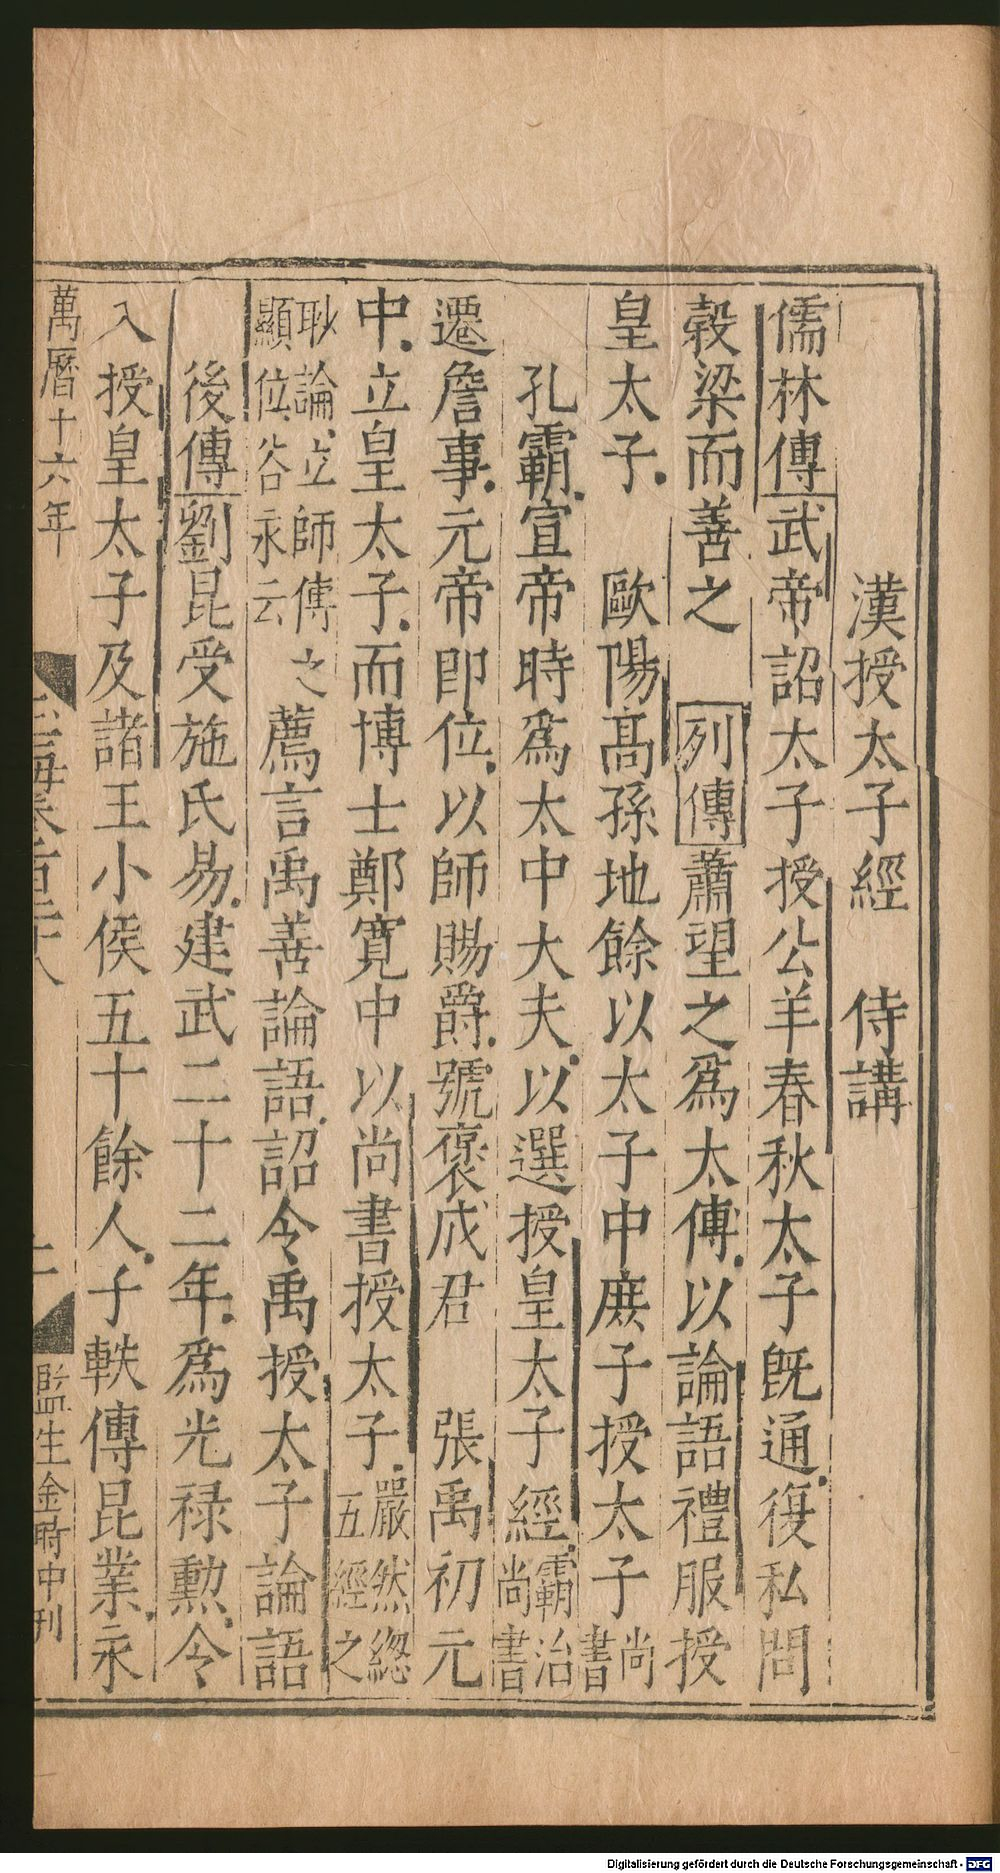 漢授太子經　侍講
儒林傳武帝詔太子授公羊春秋太子旣通復私問
穀梁而善之　列傳蕭望之爲太傅以論語禮服授
皇太子　歐陽高孫地餘以太子中庶子授太子尚書
孔霸宣帝時爲太中大夫以選授皇太子經霸治尚書
遷詹事元帝即位以師賜爵號褒成君　張禹初元
中立皇太子而博士鄭寬中以尚書授太子嚴然緫五經之
眇論立師傅之顯位谷永云薦言禹善論語詔令禹授太子論語
後傳劉昆受施氏易建武二十二年爲光祿勲令
入授皇太子及諸王小侯五十餘人子軼傳昆業永
萬曆十六年
玉海卷百二十八
監生金時中刊
Digitalisierung gefördert durch die Deutsche Forschungsgemeinschaft - DFG